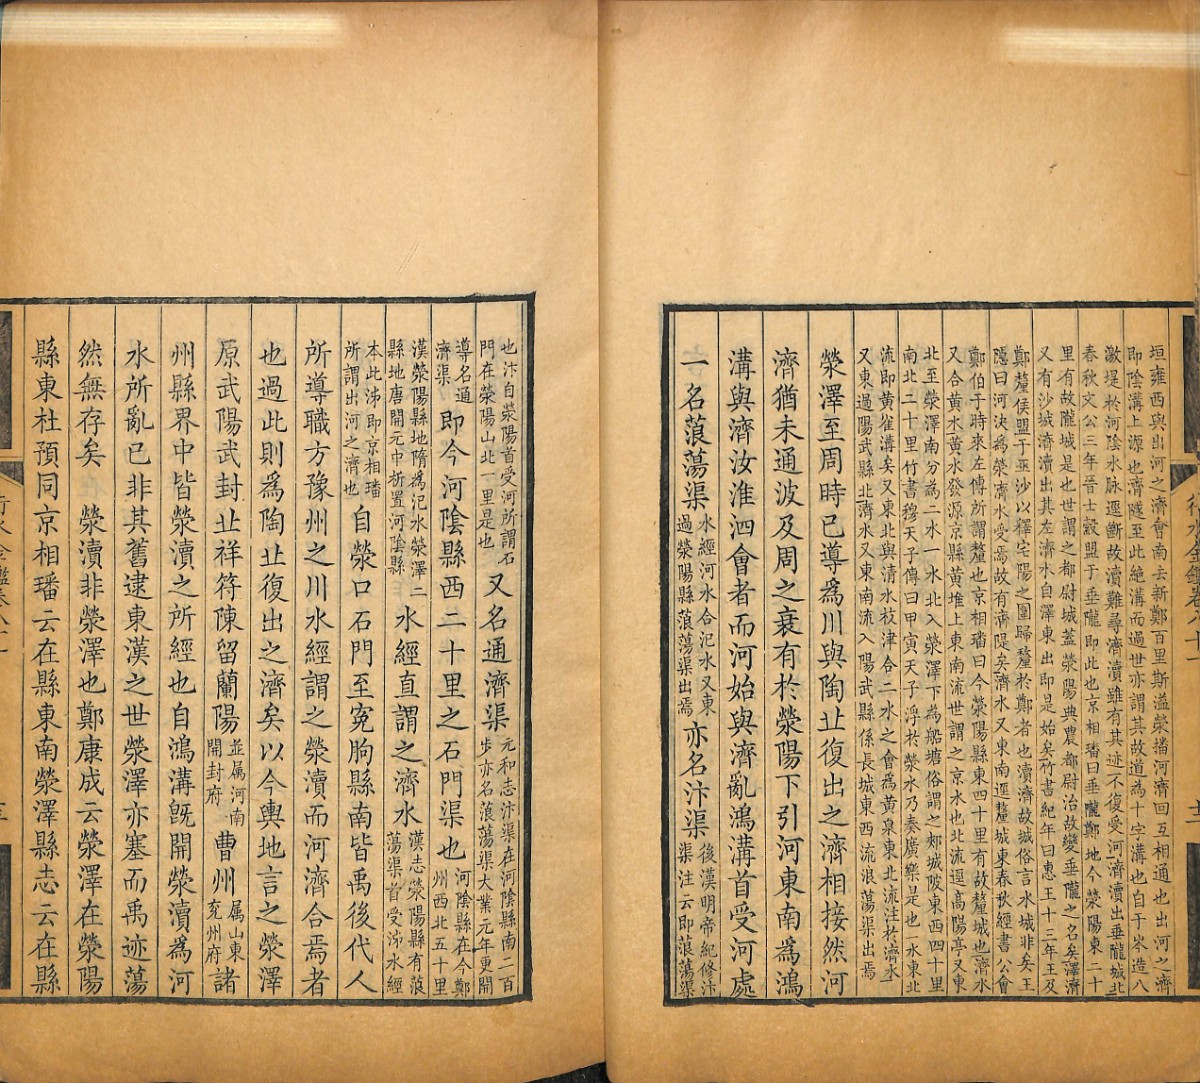 垣雍西與出河之濟會南去新鄭百里斯溢滎播河濟回互相通也出河之濟
即陰溝上源也濟隧至此絶溝而過世亦謂其故道為十字溝也自于岑造八
激堤於河陰水脉逕斷故瀆難尋濟瀆雖有其迹不復受河濟瀆出垂隴城北
春秋文公三年晉士縠盟于垂隴即此也京相璠曰垂隴鄭地今滎陽東二十
里有故隴城是也世謂之都尉城葢滎陽典農都尉治故變垂隴之名矣澤濟
又有沙城濟瀆出其左濟水自澤東出即是始矣竹書紀年曰惠王十三年王及
鄭釐侯盟于巫沙以釋宅陽之圍歸釐於鄭者也瀆濟故城俗言水城非矣王
隱曰河決為滎濟水受焉故有濟隄矣濟水又東南逕釐城東春秋經書公會
鄭伯于時來左傳所謂釐也京相璠曰今滎陽縣東四十里有故釐城也濟水
又合黃水黃水發源京縣黃堆上東南流世謂之京水也北流逕高陽亭又東
北至滎澤南分為二水一水北入滎澤下為船塘俗謂之郟城陂東西四十里
南北二十里竹書穆天子傳曰甲寅天子浮於滎水乃奏廣樂是也一水東北
流即黃雀溝矣又東北與清水枝津合二水之會為黃泉東北流注於濟水
又東過陽武縣北濟水又東南流入陽武縣係長城東西流浪蕩渠出焉
滎澤至周時已導為川與陶丘復出之濟相接然河
濟猶未通波及周之衰有於滎陽下引河東南為鴻
溝與濟汝淮泗會者而河始與濟亂鴻溝首受河處
一名蒗蕩渠水經河水合汜水又東過滎陽縣蒗蕩渠出焉亦名汴渠後漢明帝紀修汴渠注云即蒗蕩渠
也汴自滎陽首受河所謂石門在滎陽山北一里是也又名通濟渠元和志汴渠在河陰縣南二百步亦名蒗蕩渠大業元年更開
導名通濟渠即今河陰縣西二十里之石門渠也河陰縣在今鄭州西北五十里
漢滎陽縣地隋為汜水滎澤二縣地唐開元中析置河陰縣水經直謂之濟水漢志滎陽縣有蒗蕩渠首受泲水經
本此泲即京相璠所謂出河之濟也自滎口石門至冤朐縣南皆禹後代人
所導職方豫州之川水經謂之滎瀆而河濟合焉者
也過此則為陶丘復出之濟矣以今輿地言之滎澤
原武陽武封丘祥符陳留蘭陽並属河南開封府曹州属山東兖州府諸
州縣界中皆滎瀆之所經也自鴻溝旣開滎瀆為河
水所亂已非其舊逮東漢之世滎澤亦塞而禹迹蕩
然無存矣 滎瀆非滎澤也鄭康成云滎澤在滎陽
縣東杜預同京相璠云在縣東南滎澤縣志云在縣